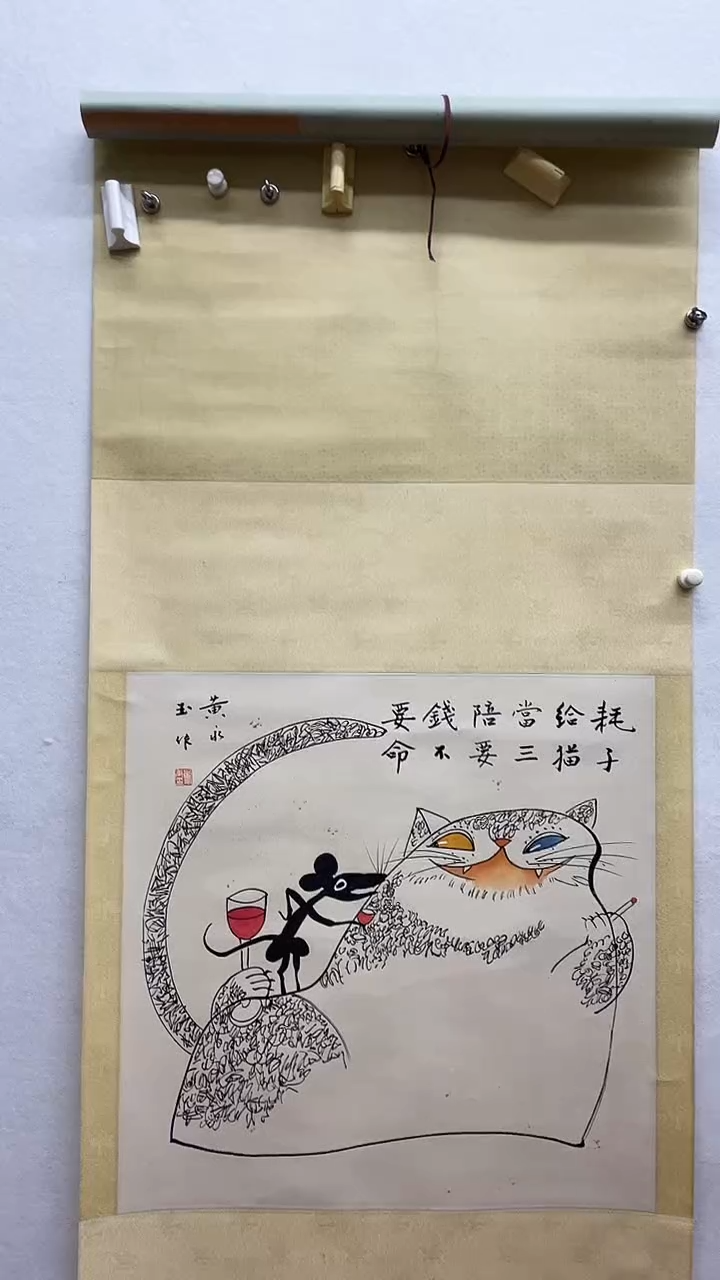 耗子
給猫
當三
陪要
錢不
要命
黄永
玉作